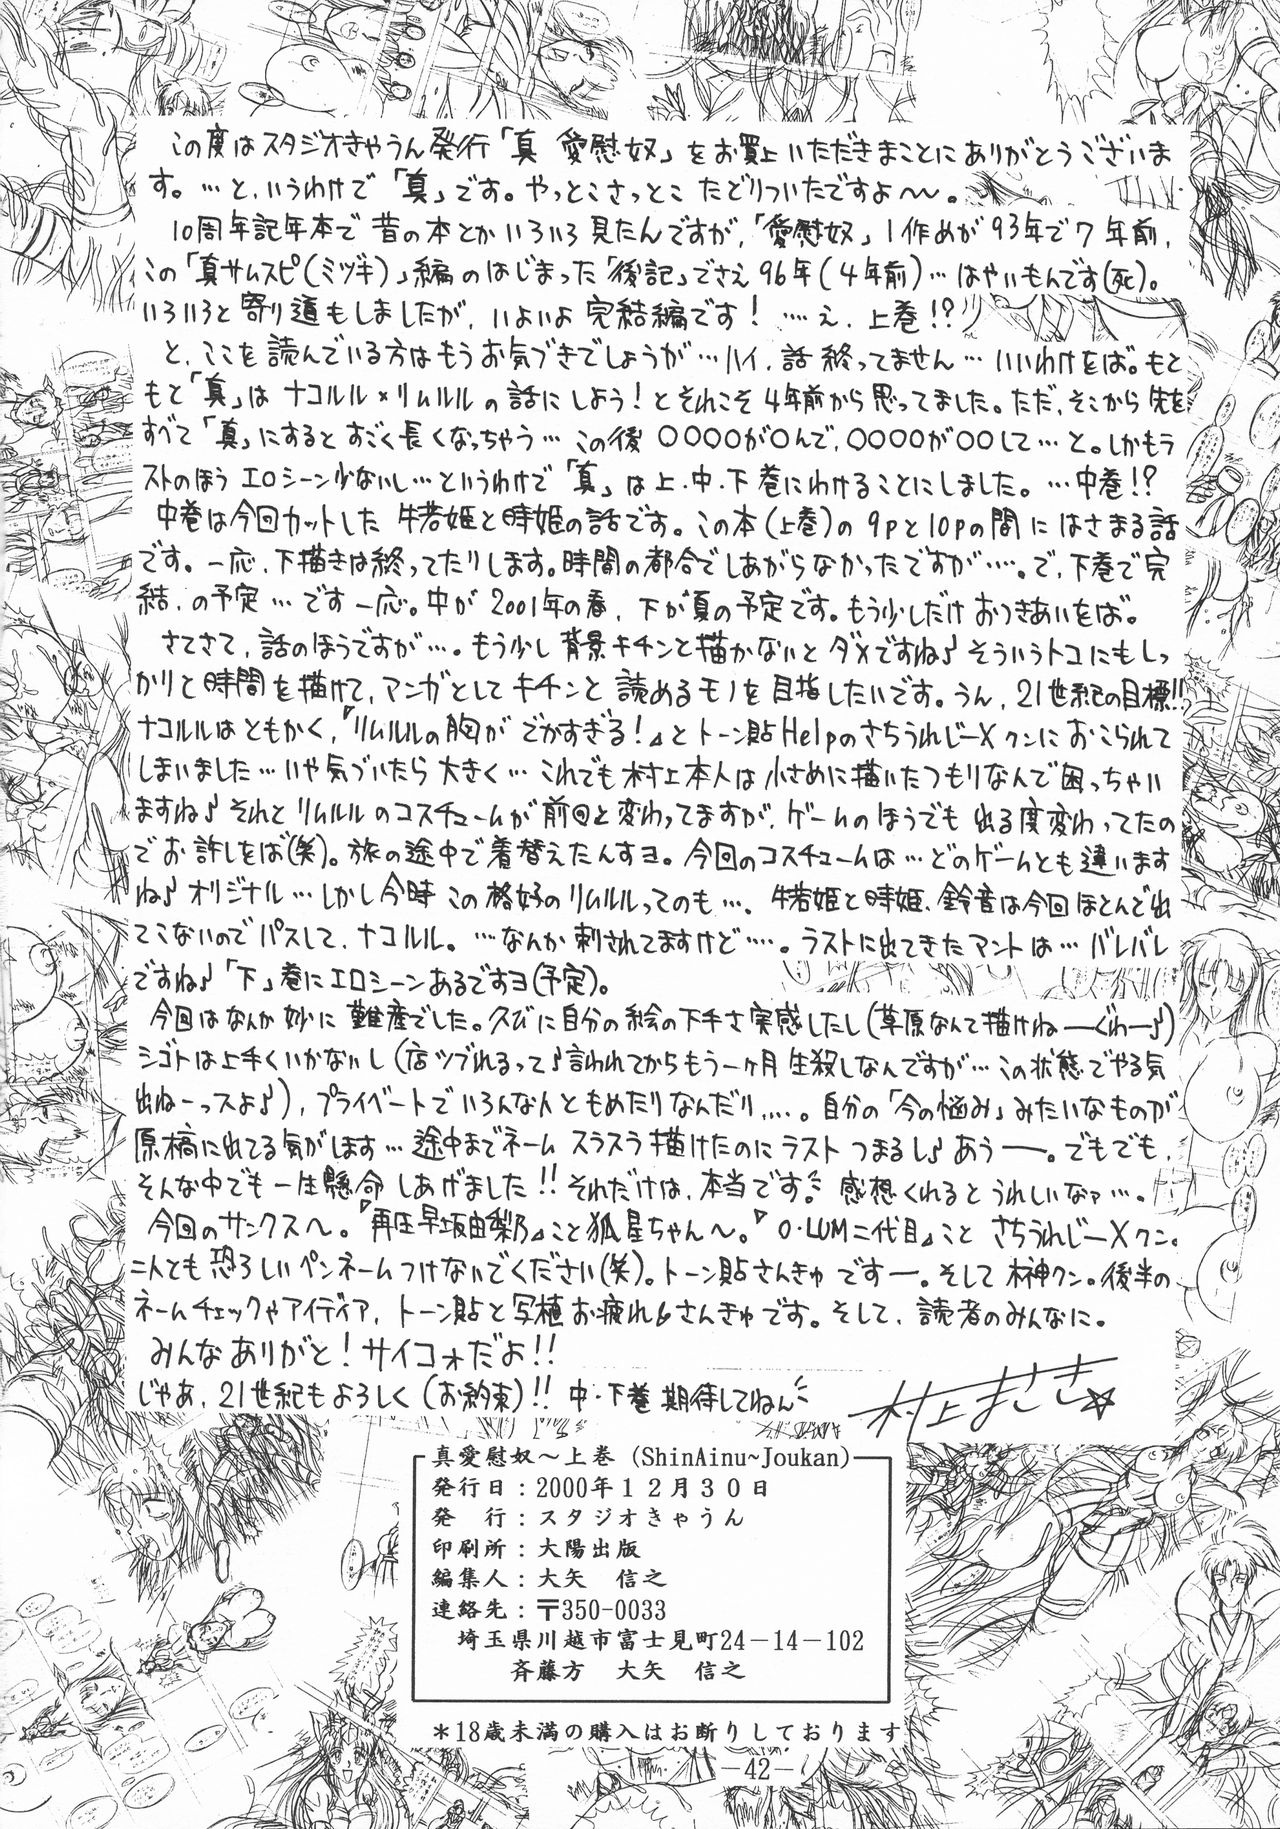 この度はスタジオきゃうん発行「真 愛慰奴」をお買上いただきまことにありがとうございま
す。…と、いうわけで「真」です。やっとこさっとこ たどりついたですよ〜〜。
10周年記年本で昔の本とかいろいろ見たんですが、「愛慰奴」1作めが93年で7年前、
この「真サムスピ(ミヅキ)」編のはじまった「後記」でさえ96年(4年前)…はやいもんです(死)。
いろいろと寄り道もしましたが、いよいよ完結編です! …え、上巻!?
と、ここを読んでいる方はもうお気づきでしょうが…ハイ、話終ってません…いいわけをば。もと
もと「真」はナコルル×リムルルの話にしよう!とそれこそ4年前から思ってました。ただ、そこから先を
すべて「真」にするとすごく長くなっちゃう…この後〇〇〇〇が〇んで、〇〇〇〇が〇〇して…と。しかもラ
ストのほうエロシーン少ないし…というわけで「真」は上・中・下巻にわけることにしました。…中巻!?
中巻は今回カットした牛若姫と時姫の話です。この本(上巻)の9pと10pの間にはさまる話
です。一応、下描きは終ってたりします。時間の都合でしあがらなかったですが…。で、下巻で完
結、の予定…です一応。中が2001年の春、下が夏の予定です。もう少しだけおつきあいをば。
さてさて、話のほうですが…。もう少し背景キチンと描かないとダメですね♪そういうトコにもしっ
かりと時間を描けて、マンガとしてキチンと読めるモノを目指したいです。うん、21世紀の目標!!
ナコルルはともかく、『リムルルの胸がでかすぎる!』とトーン貼HelpのさちうれじーXクンにおこられて
しまいました…いや気づいたら大きく…これでも村上本人は小さめに描いたつもりなんで困っちゃい
ますね♪それとリムルルのコスチュームが前回と変わってますが、ゲームのほうでも出る度変わってたの
でお許しをば(笑)。旅の途中で着替えたんすヨ。今回のコスチュームは…どのゲームとも違います
ね♪オリジナル…しかし今時この格好のリムルルってのも…。牛若姫と時姫、鈴音は今回ほとんど出
てこないのでパスして、ナコルル。…なんか刺されてますけど…。ラストに出てきたマントは…バレバレ
ですね♪「下」巻にエロシーンあるですヨ(予定)。
今回はなんか妙に難産でした。久びに自分の絵の下手さ実感したし(草原なんて描けねーぐわー♪)
シゴトは上手くいかないし(店ツブれるって♪言われてからもう一ヶ月生殺しなんですが…この状態でやる気
出ねーっスよ♪)、プライベートでいろんな人ともめたりなんだり…。自分の「今の悩み」みたいなものが
原稿に出てる気がします…途中までネームスラスラ描けたのにラストつまるし♪あうー。でもでも、
そんな中でも一生懸命しあげました!!それだけは、本当です。感想くれるとうれしいなァ…。
今回のサンクスへ。『再圧早坂由梨乃』こと狐星ちゃん〜。『O・LUM二代目』こと さちうれじーXクン。
二人とも恐ろしいペンネームつけないでください(笑)。トーン貼さんきゅですー。そして榊クン。後半の
ネームチェックやアイディア、トーン貼と写植お疲れ&さんきゅです。そして、読者のみんなに。
みんなありがと!サイコォだよ!!
じゃあ、21世紀もよろしく(お約束)!! 中・下巻期待してねん
村上まさき☆
真愛慰奴〜上巻 (ShinAinu~Joukan)
発行日:2000年12月30日
発 行:スタジオきゃうん
印刷所:大陽出版
編集人:大矢 信之
連絡先:〒350-0033
埼玉県川越市富士見町24-14-102
斉藤方 大矢 信之
*18歳未満の購入はお断りしております
-42-